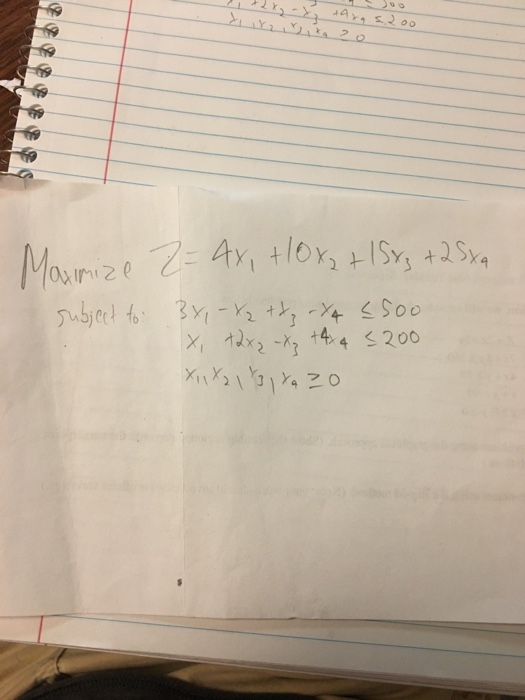 x₁ +2x₂ - x₃ +4x₄ ≤ 200
x₁, x₂, x₃, x₄ ≥ 0
Maximize Z = 4x₁ + 10x₂ + 15x₃ + 25x₄
subject to: 3x₁ - x₂ + x₃ - x₄ ≤ 500
x₁ + 2x₂ - x₃ + 4x₄ ≤ 200
x₁, x₂, x₃, x₄ ≥ 0